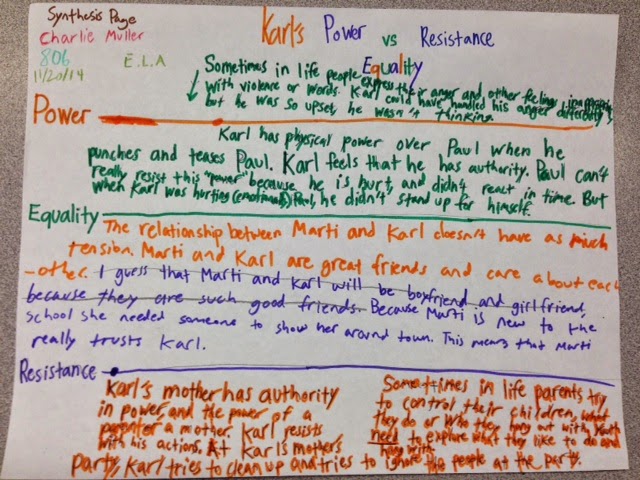 Synthesis Page
Charlie Muller
806 E.L.A
11/20/14
Karl's Power vs Resistance
Equality
Sometimes in life people express their anger and other feelings inappropriately
with violence or words. Karl could have handled his anger differently,
but he was so upset, he wasn't thinking.
Power
Karl has physical power over Paul when he
punches and teases Paul. Karl feels that he has authority. Paul can't
really resist this "power" because he is hurt, and didn't react in time. But
when Karl was hurting (emotionally) Paul, he didn't stand up for himself.
Equality
The relationship between Marti and Karl doesn't have as much
tension. Marti and Karl are great friends and care about each
-other. I guess that Marti and Karl will be boyfriend and girlfriend,
because they are such good friends. Because Marti is new to the
school she needed someone to show her around town. This means that Marti
really trusts Karl.
Resistance
Karl's mother has authority
in power, and the power of a
a mother. Karl resists
with his actions. At Karl's mother's
party, Karl tries to clean up and tries to ignore the people at the party.
Sometimes in life parents try
to control their children, what
they do or who they hang out with. Youth
need to explore what they like to do and
hang with.